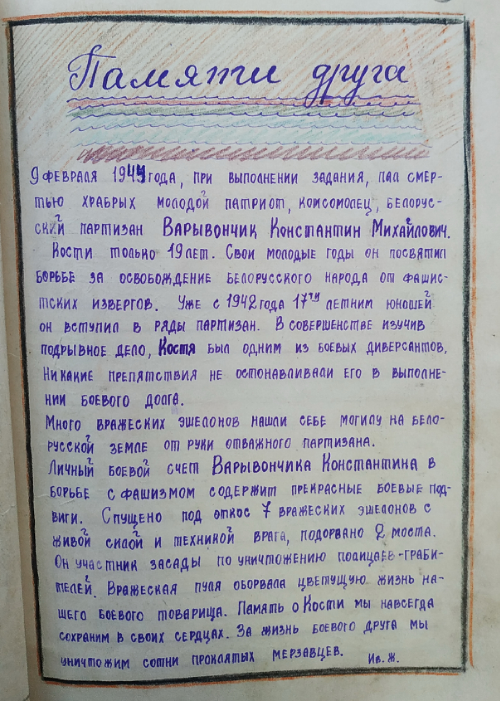 Памяти друга
9 февраля 1944 года, при выполнении задания, пал смер-
тью храбрых молодой патриот, комсомолец, белорус-
ский партизан Варывончик Константин Михайлович.
Кости только 19 лет. Свои молодые годы он посвятил
борьбе за освобождение белорусского народа от фашис-
тских извергов. Уже с 1942 года 17ти летним юношей
он вступил в ряды партизан. В совершенстве изучив
подрывное дело, Костя был одним из боевых диверсантов.
Никакие препятствия не останавливали его в выполне-
нии боевого долга.
Много вражеских эшелонов нашли себе могилу на бело-
русской земле от руки отважного партизана.
Личный боевой счет Варывончика Константина в
борьбе с фашизмом содержит прекрасные боевые под-
виги. Спущено под откос 7 вражеских эшелонов с
живой силой и техникой врага, подорвано 2 моста.
Он участник засады по уничтожению полицаев-граби-
телей. Вражеская пуля оборвала цветущую жизнь на-
шего боевого товарища. Память о Кости мы навсегда
сохраним в своих сердцах. За жизнь боевого друга мы
уничтожим сотни проклятых мерзавцев.
Ив. Ж.